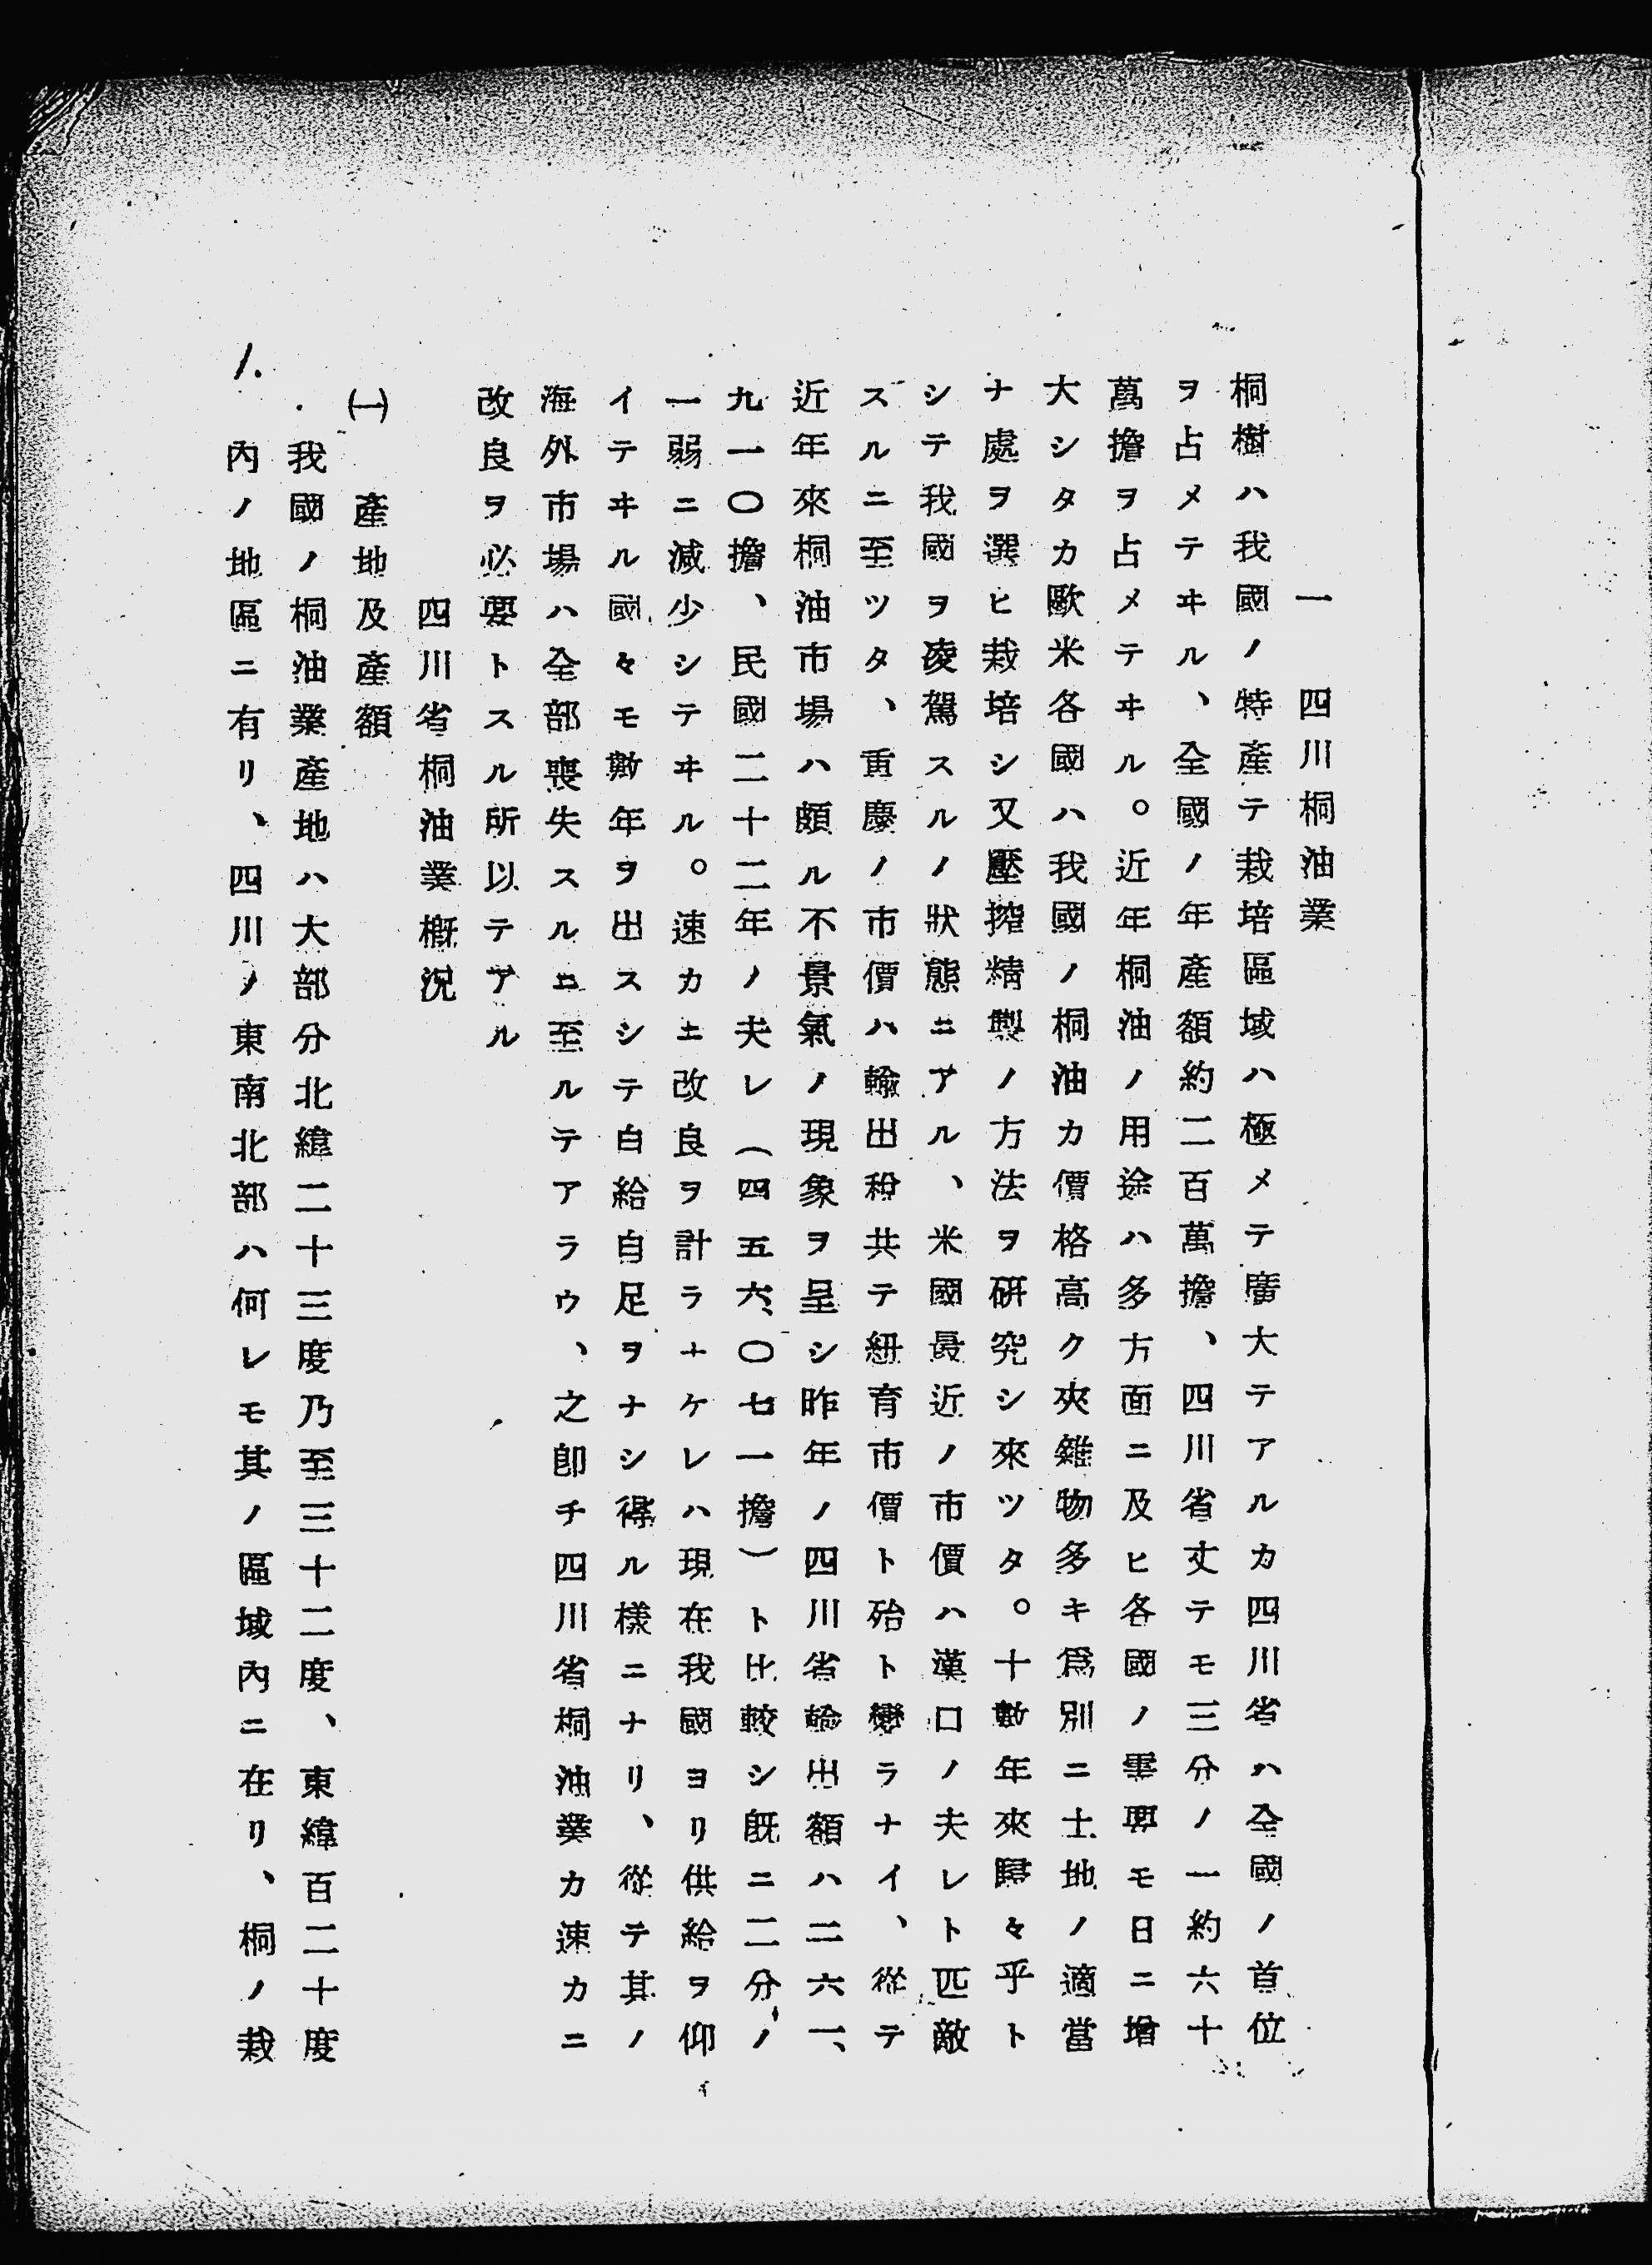 一　四川桐油業
桐樹ハ我國ノ特產テ栽培區域ハ極メテ廣大テアルカ四川省ハ全國ノ首位
ヲ占メテヰル、全國ノ年產額約二百萬擔、四川省丈テモ三分ノ一約六十
萬擔ヲ占メテヰル。近年桐油ノ用途ハ多方面ニ及ヒ各國ノ需要モ日ニ增
大シタカ歐米各國ハ我國ノ桐油カ價格高ク夾雜物多キ爲別ニ土地ノ適當
ナ處ヲ選ヒ栽培シ又壓搾精製ノ方法ヲ研究シ來ツタ。十數年來駸々乎ト
シテ我國ヲ凌駕スルノ狀態ニアル、米國最近ノ市價ハ漢口ノ夫レト匹敵
スルニ至ツタ、重慶ノ市價ハ輸出稅共テ紐育市價ト殆ト變ラナイ、從テ
近年來桐油市場ハ頗ル不景氣ノ現象ヲ呈シ昨年ノ四川省輸出額ハ二六一、
九一〇擔、民國二十二年ノ夫レ（四五六、〇七一擔）ト比較シ旣ニ二分ノ
一弱ニ減少シテヰル。速カニ改良ヲ計ラナケレハ現在我國ヨリ供給ヲ仰
イテヰル國々モ數年ヲ出スシテ自給自足ヲナシ得ル樣ニナリ、從テ其ノ
海外市場ハ全部喪失スルニ至ルテアラウ、之卽チ四川省桐油業カ速カニ
改良ヲ必要トスル所以テアル
四川省桐油業槪況
㈠　產地及產額
我國ノ桐油業產地ハ大部分北緯二十三度乃至三十二度、東緯百二十度
1.
內ノ地區ニ有リ、四川ノ東南北部ハ何レモ其ノ區域內ニ在リ、桐ノ栽